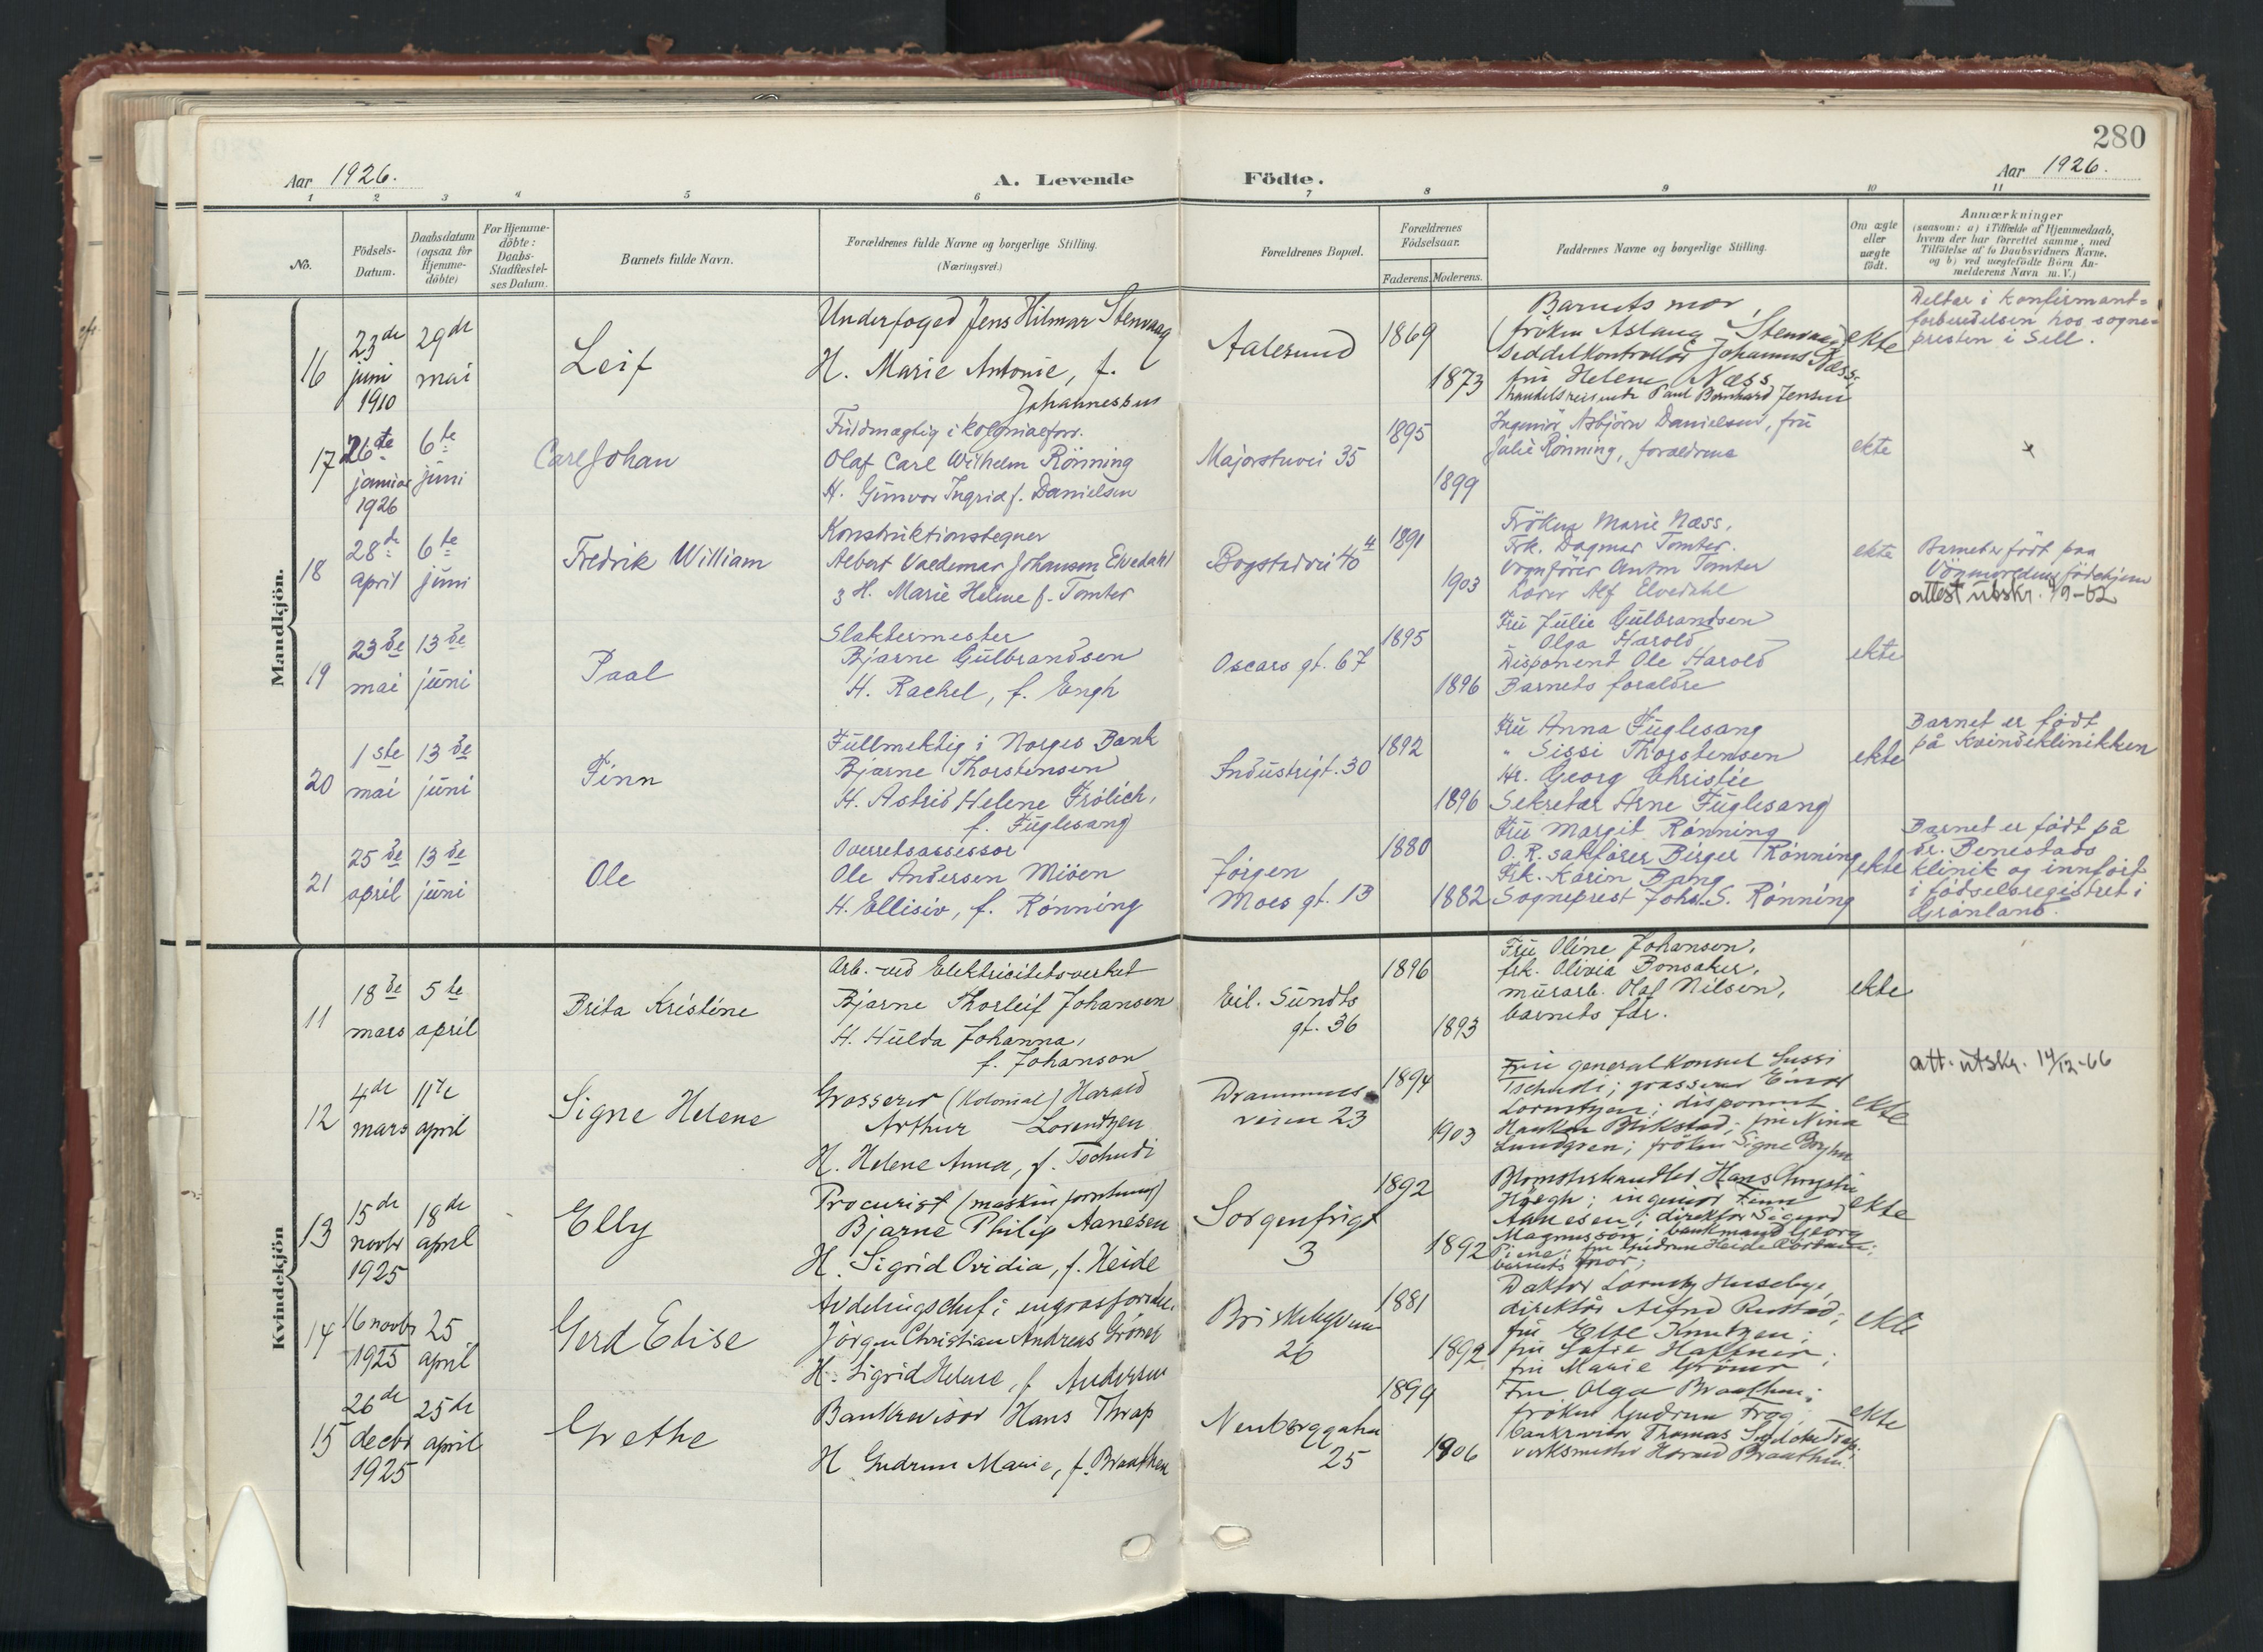 280
Aar 1926.
A. Levende Födte.
Aar 1926.
1 2 3 4 5 6 7 8 9 10 11
No.
Födsels-Datum.
Daabsdatum (ogsaa for Hjemme-döbte)
For Hjemme-döbte: Daabs-Stadfæstel-ses Datum.
Barnets fulde Navn.
Forældrenes fulde Navne og borgerlige Stilling.
(Næringsvei.)
Forældrenes Bopæl.
Forældrenes Födselsaar.
Faderens. Moderens.
Faddernes Navne og borgerlige Stilling.
Om ægte eller uægte födt.
Anmærkninger
(saasom: a) i Tilfælde af Hjemmedaab,
hvem der har forrettet samme, med
Tilföielse af to Daabsvidners Navne.
og b) ved uægtefödte Börn An-
melderens Navn m. V.)
Mandkjön.
16
23de juni 1910
29de mai
Leif
Underfoged Jens Hilmar Stenvaag
H. Marie Antonie, f.
Johannessen
Aalesund
1869
1873
Barnets mor,
frøken Aslaug Stenvaag
seddelkontrollør Johannes Næss,
fru Helene Næss,
handelsreisende Paul Bernhard Jensen
ekte
Deltar i konfirmant-
forberedelsen hos sogne-
presten i Sell.
17
26de januar 1926
6te juni
Carl Johan
Fuldmægtig i kolonialforr.
Olaf Carl Wilhelm Rönning
H. Gunvor Ingrid f. Danielsen
Majorstuvei 35
1895
1899
Ingeniör Asbjörn Danielsen, fru
Julie Rönning, forældrene
ekte
18
28de april
6te juni
Fredrik William
Konstruktionstegner
Albert Valdemar Johansen Elvedahl
3 H. Marie Helene f. Tomter
Bogstadvei 40 4
1891
1903
Fröken Marie Næss,
Frk. Dagmar Tomter.
Vognfører Anton Tomter
Lærer Alf Elvedahl
ekte
Barnet er født paa
fødehjem
attest utskr. 1/9-62
19
23de mai
13de juni
Paal
Slaktermester
Bjarne Gulbrandsen
H. Rachel, f. Engh
Oscars gt. 67
1895
1896
Fru Julie Gulbrandsen
Olga Harold
Disponent Ole Harold
Barnets foreldre
ekte
20
1ste mai
13de juni
Finn
Fullmektig i Norges Bank
Bjarne Thorstensen
H. Astrid Helene Frölich,
f. Fuglesang
Industrigt. 30
1892
1896
Fru Anna Fuglesang
" Sissi Thorstensen
Hr. Georg Christie
Sekretær Arne Fuglesang
ekte
Barnet er født
på Kvindeklinikken
21
25de april
13de juni
Ole
Overretsassessor
Ole Andersen Miöen
H. Ellisiv, f. Rönning
Jörgen
Moes gt. 13
1880
1882
Fru Margit Rönning
O. R. sakfører Birger Rönning
Frk. Karin Bang
Sogneprest Johs. S. Rönning
ekte
Barnet er født på
dr. Benestads
klinik og innført
i fødselsregistret i
Grønland.
Kvindekjön
11
18de mars
5te april
Brita Kristine
Arb. ved Elektricitetsverket
Bjarne Thorleif Johansen
H. Hulda Johanna,
f. Johanson
Eil. Sundts
gt. 36
1896
1893
Fru Oline Johansen,
frk. Olivia Bonsaker,
murarb. Olaf Nilsen,
barnets far.
ekte
12
4de mars
11te april
Signe Helene
Grosserer (Kolonial) Harald
Arthur Lorentzen
H. Helene Anna, f. Tschudi
Drammens-
veien 23
1894
1903
Fru generalkonsul Sussi
Tschudi; grosserer Einar
Lorentzen; disponent
Haakon Blikstad; fru Nina
Lundgren; frøken Signe Bryhn
ekte
att. utskr. 14/12-66
13
15de novbr 1925
18de april
Elly
Procurist (maskinforretning)
Bjarne Philip Aanesen
H. Sigrid Ovidia, f. Heide
Sorgenfrigt
3
1892
1892
Blomsterhandler Hans Chrystie
Høegh; ingeniør Finn
Aanesen; direktør Sigurd
Magnusson; bankmand Georg
fru Gudrun Heide
barnets mor;
ekte
14
16 novbr 1925
25 april
Gerd Elise
Avdelingschef i engrosforretn.
Jörgen Christian Andreas Gröner
H. Sigrid Helene, f. Andersen
Briskebyveien
26
1881
1892
Doktor Lorentz Huseby,
direktør Rustad;
fru Else Knutzen;
fru Sofie Haffner;
fru Marie Grøner
ekte
15
26de decbr 1925
25de april
Grethe
Bankrevisor Hans Thrap
H. Gudrun Marie, f. Braathen
Neuberggaten
25
1899
1906
Fru Olga Braathen;
frøken Gudrun
bankrevisor Thomas
verksmester Harald Braathen.
ekte